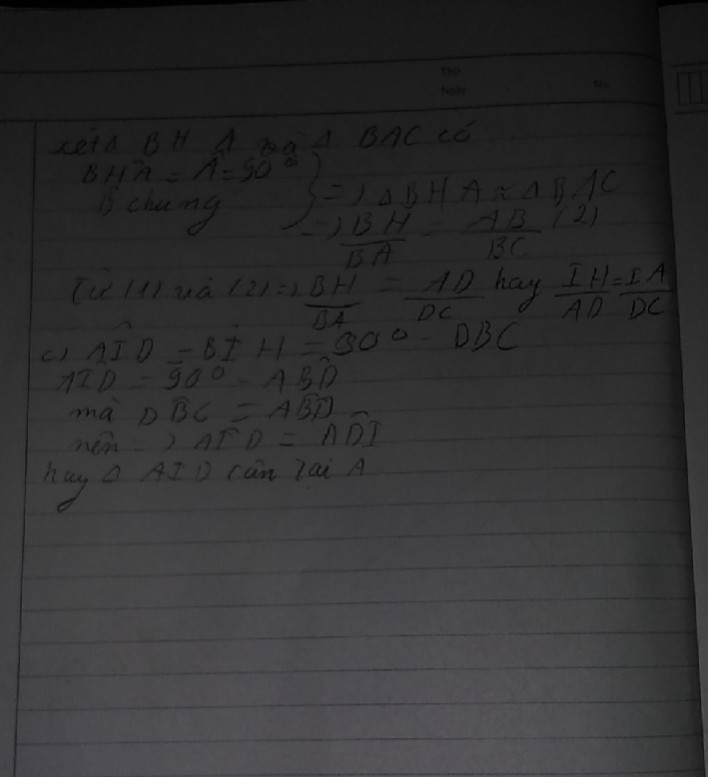 Thứ
Ngày No.
xét Δ BHA và Δ BAC có
BHA = Â = 90°
B chung } => Δ BHA ~ Δ BAC
=> BH/BA = AB/BC (2)
Từ (1) và (2) => BH/BA = AD/DC hay IH/AD = IA/DC
c) AÎD = BÎH = 90° - DBC
AID = 90° - ABD̂
mà DB̂C = AB̂D
nên => AÎD = AD̂I
hay Δ AID cân tại A